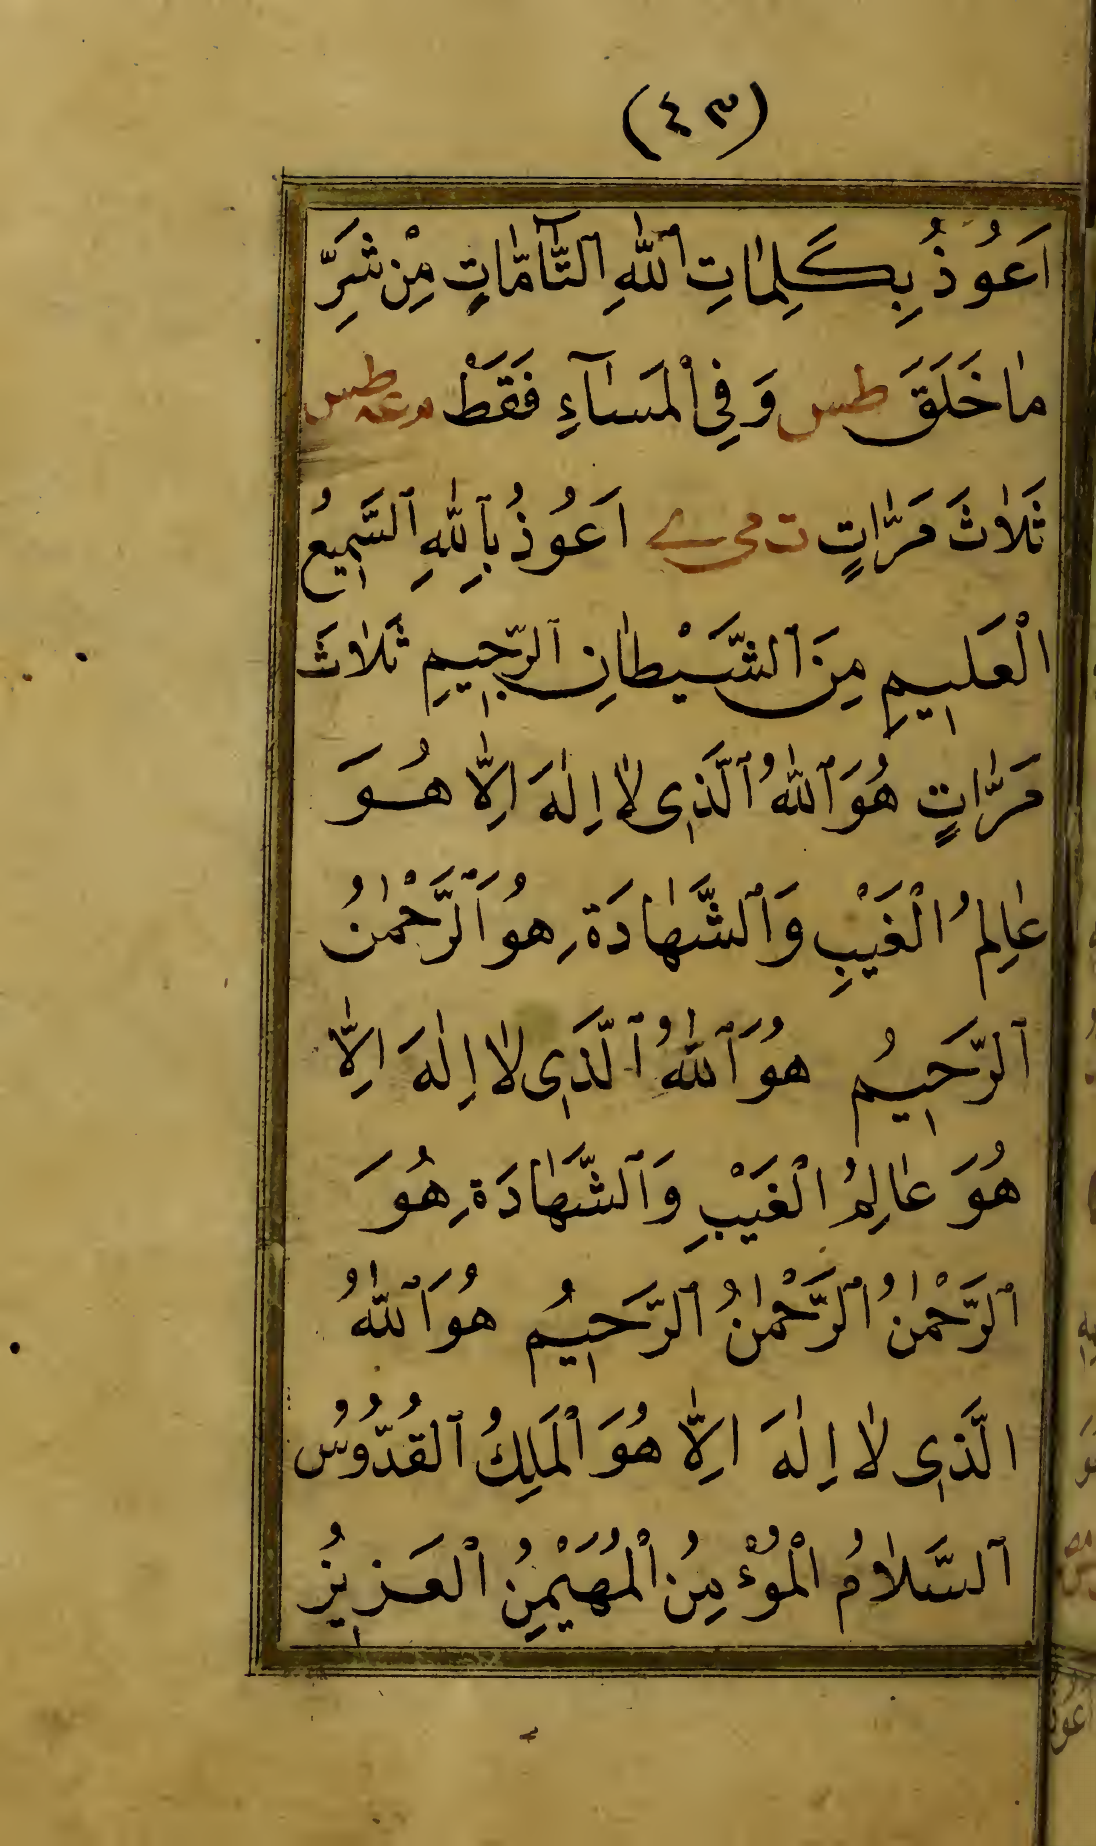 (٤٣)
اَعُوذُ بِكَلِمٰاتِ ٱللّٰهِ ٱلتَّآمّٰاتِ مِنْ شَرِّ
مٰا خَلَقَ طس وَفِى ٱلْمَسٰآءِ فَقَطْ مه عه طس
ثَلٰاثَ مَرّٰاتٍ ت مى ى اَعُوذُ بِٱللّٰهِ ٱلسَّمِيعُ
الْعَلِيمِ مِنَ ٱلشَّيْطٰانِ ٱلرَّجِيمِ ثَلٰاثَ
مَرّٰاتٍ هُوَ ٱللّٰهُ ٱلَّذِى لٰا اِلٰهَ اِلّٰا هُوَ
عٰالِمُ الْغَيْبِ وَٱلشَّهٰادَةِ هُوَ ٱلرَّحْمٰنُ
ٱلرَّحِيمُ هُوَ ٱللّٰهُ ٱلَّذِى لٰا اِلٰهَ اِلّٰا
هُوَ عٰالِمُ الْغَيْبِ وَٱلشَّهٰادَةِ هُوَ
ٱلرَّحْمٰنُ ٱلرَّحْمٰنُ ٱلرَّحِيمُ هُوَ ٱللّٰهُ
الَّذِى لٰا اِلٰهَ اِلّٰا هُوَ ٱلْمَلِكُ ٱلْقُدُّوُسُ
ٱلسَّلٰامُ الْمُوْءْمِنُ ٱلْمُهَيْمِنُ الْعَزِيزُ